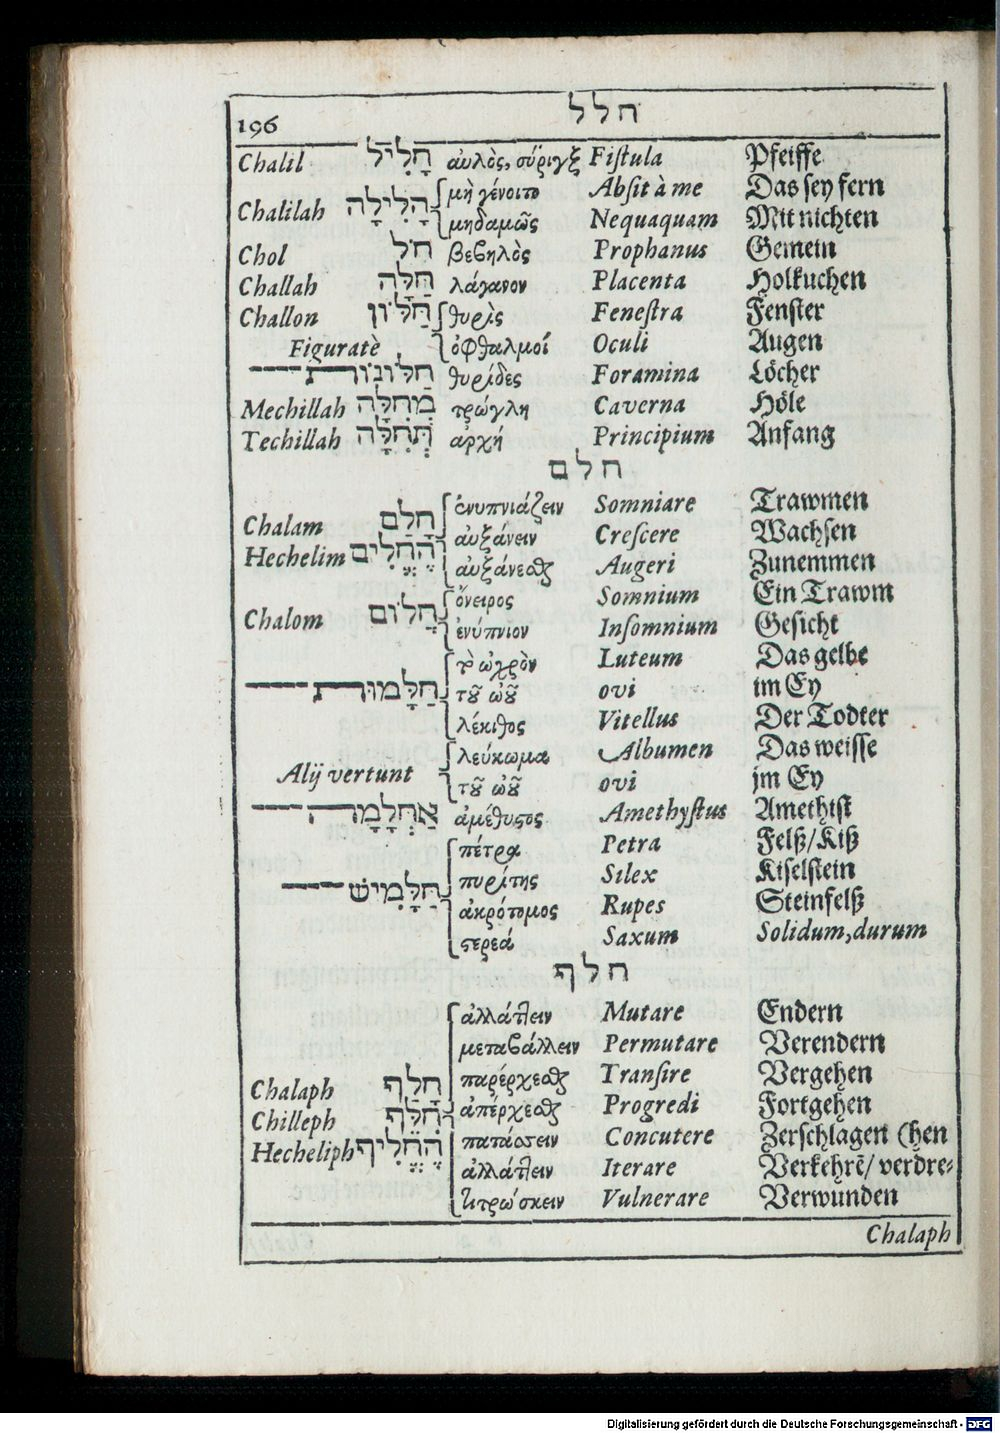 196 חלל
Chalil חָלִיל αὐλὸς, σύριγξ Fiſtula Pfeiffe
Chalilah חָלִילָה μὴ γένοιτο Abſit à me Das ſey fern
μηδαμῶς Nequaquam Mit nichten
Chol חֹל βεβηλὸς Prophanus Gemein
Challah חַלָּה λάγανον Placenta Holkuchen
Challon חַלּוֹן θυρὶς Feneſtra Fenſter
Figuratè ὀφθαλμοί Oculi Augen
חַלּוֹנוֹת θυρίδες Foramina Löcher
Mechillah מְחִלָּה τρώγλη Caverna Höle
Techillah תְּחִלָּה ἀρχή Principium Anfang
חלם
Chalam חָלַם ἐνυπνιάζειν Somniare Trawmen
αὐξάνειν Creſcere Wachſen
Hechelim הֶחֱלִים αὐξάνεσθαι Augeri Zunemmen
Chalom חֲלוֹם ὄνειρος Somnium Ein Trawm
ἐνύπνιον Inſomnium Geſicht
τὸ ὠχρὸν Luteum Das gelbe
חַלָּמוּת τοῦ ὠοῦ ovi im Ey
λέκιθος Vitellus Der Todter
Alij vertunt λεύκωμα Albumen Das weiſſe
τοῦ ὠοῦ ovi jm Ey
אַחְלָמָה ἀμέθυστος Amethyſtus Amethiſt
πέτρα Petra Felß/Kiß
חַלָּמִישׁ πυρίτης Silex Kiſelſtein
ἀκρότομος Rupes Steinfelß
στερεά Saxum Solidum, durum
חלף
ἀλλάττειν Mutare Endern
μεταβάλλειν Permutare Verendern
Chalaph חָלַף παρέρχεσθαι Tranſire Vergehen
Chilleph חִלֵּף ἀπέρχεσθαι Progredi Fortgehen
Hecheliph הֶחֱלִיף πατάσσειν Concutere Zerſchlagen (hen
ἀλλάττειν Iterare Verkehrē/ verdre⸗
τιτρώσκειν Vulnerare Verwunden
Chalaph
Digitalisierung gefördert durch die Deutsche Forschungsgemeinschaft - DFG